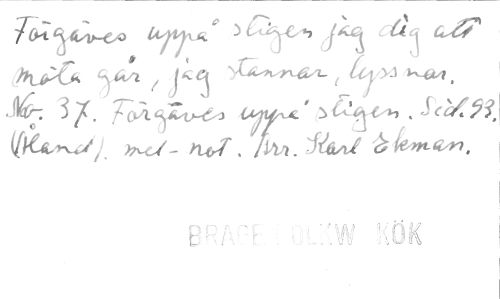 Förgäves uppå stigen jag dig att
möta går, jag stannar, lyssnar.
No. 37. Förgäves uppå stigen. Sid. 93.
(Åland). mel-not. Arr. Karl Ekman.
BRAGE FOLKW KÖK